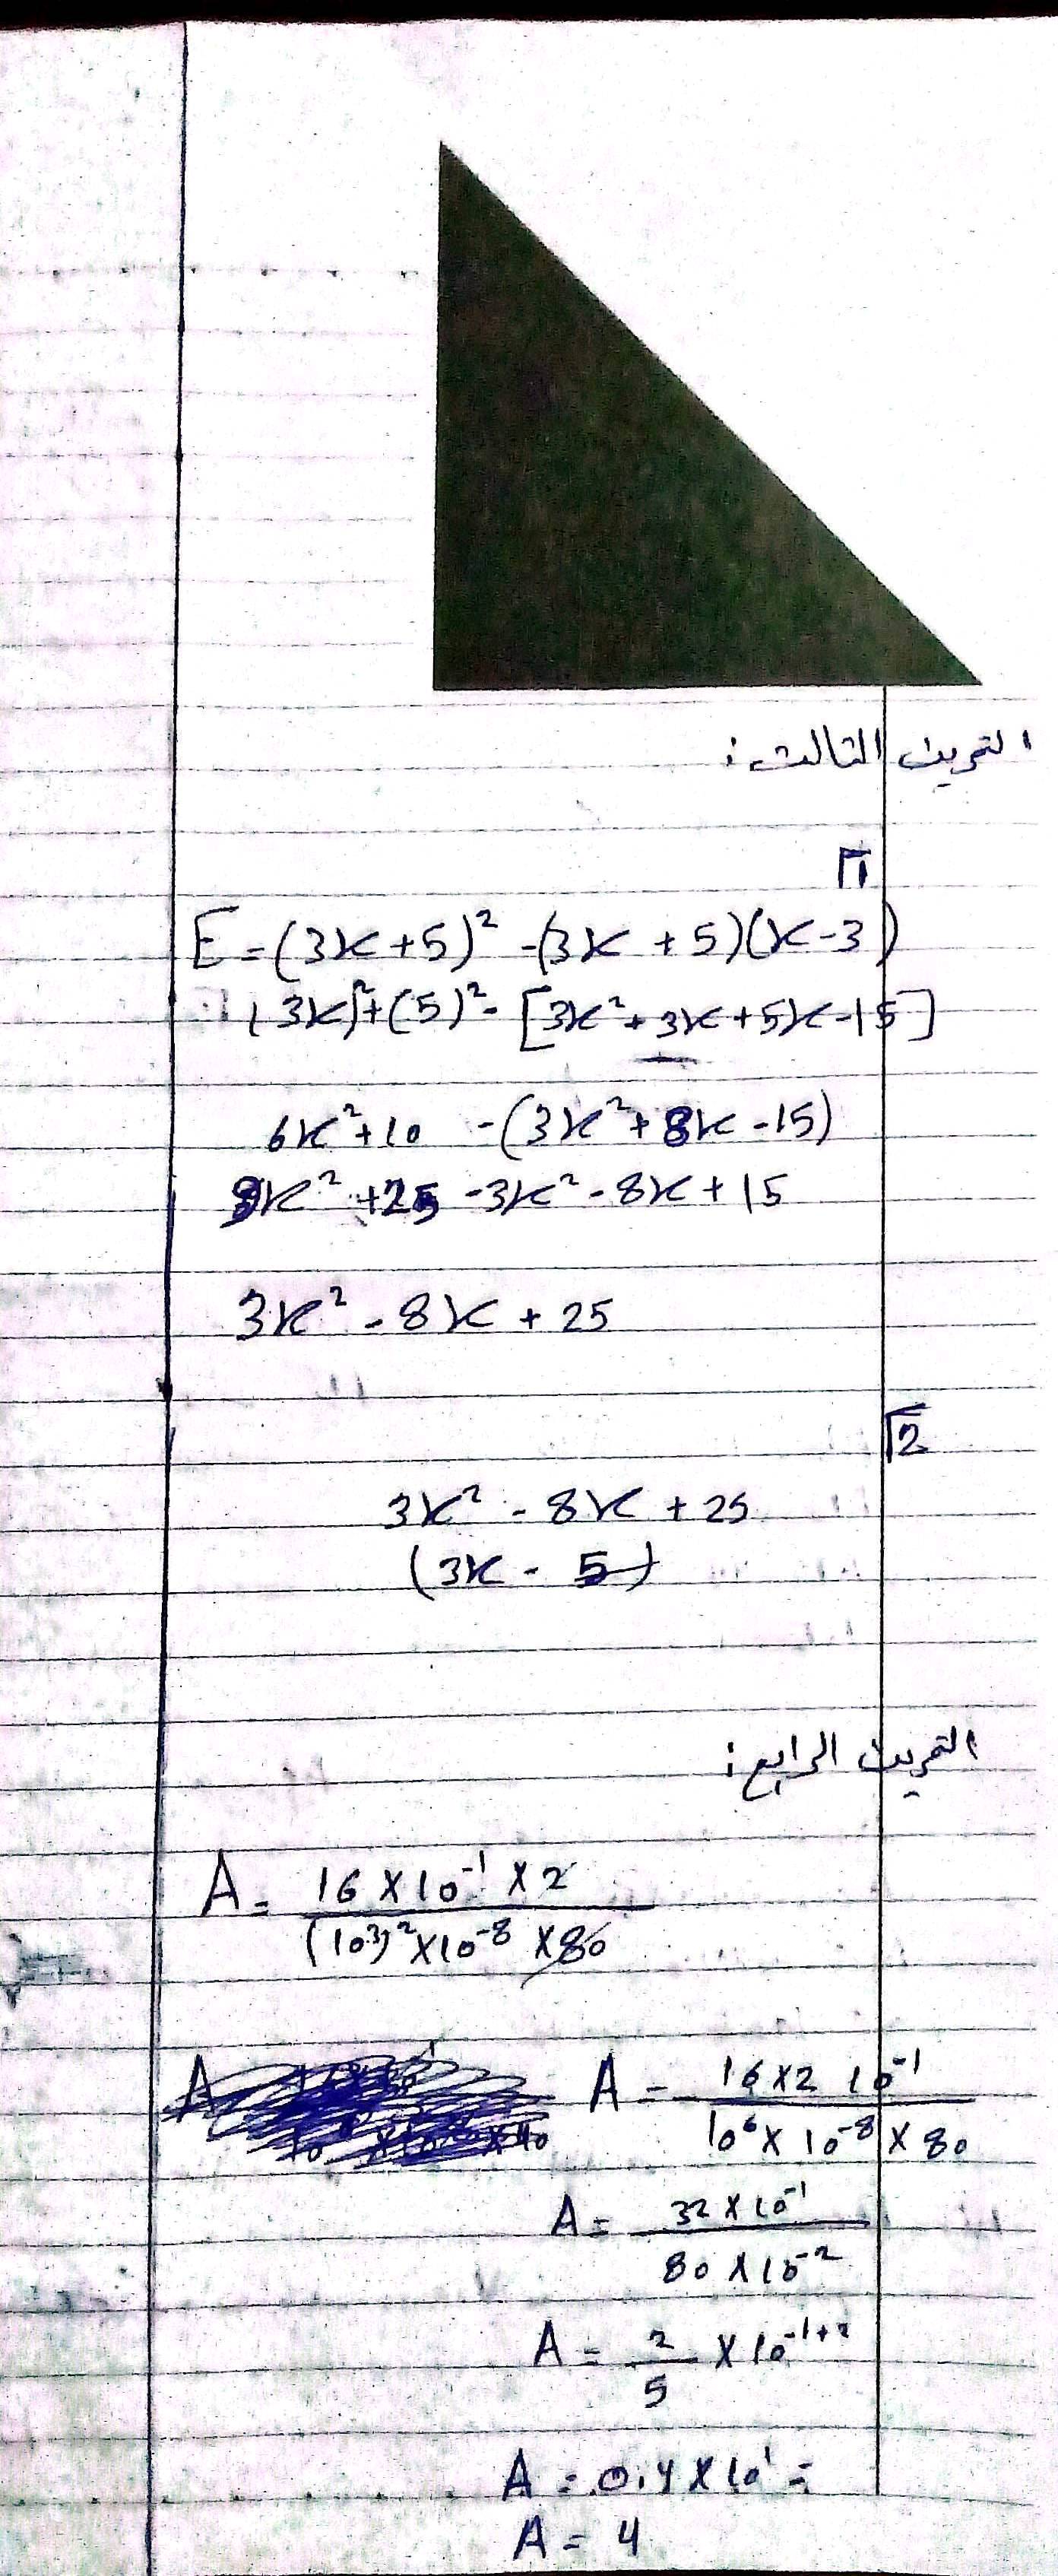 التمرين الثالث:
1
E = (3x+5)² - (3x + 5)(x-3)
(3x)²+(5)² - [3x² + 3x + 5x - 15]
6x² + 10 - (3x² + 8x - 15)
x² + 25 - 3x² - 8x + 15
3x² - 8x + 25
2
3x² - 8x + 25
(3x - 5)
التمرين الرابع:
A = 16 X 10⁻¹ X 2 / (10³)² X 10⁻⁸ X 80
A
A = 16 X 2 10⁻¹ / 10⁶ X 10⁻⁸ X 80
A = 32 X 10⁻¹ / 80 X 10⁻²
A = 2/5 X 10⁻¹⁺²
A = 0.4 X 10¹ =
A = 4